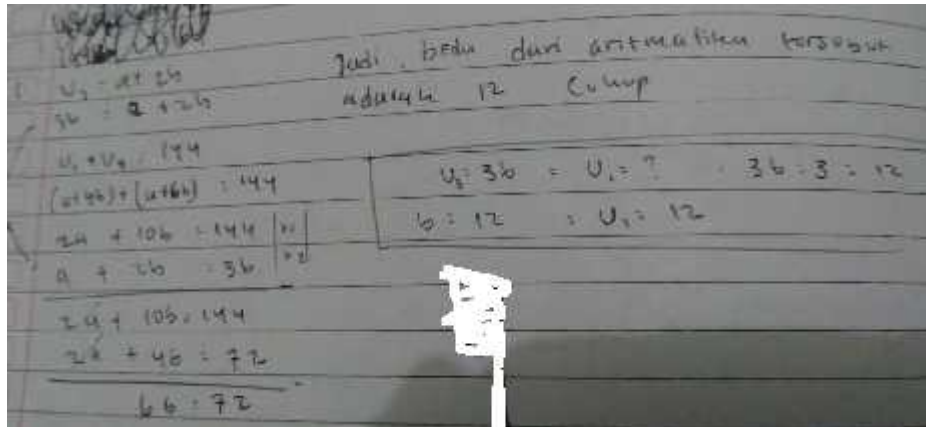 U₃ = a + 2b
36 = a + 2b
U₅ + U₇ = 144
(a+4b)+(a+6b) = 144
2a + 10b = 144 |x1|
a + 2b = 36 |x2|
2a + 10b = 144
2a + 4b = 72
6b = 72
Jadi, beda dari aritmatika tersebut
adalah 12 Cukup
U₃ = 36 = U₁ = ? 36 : 3 = 12
b = 12 = U₁ = 12